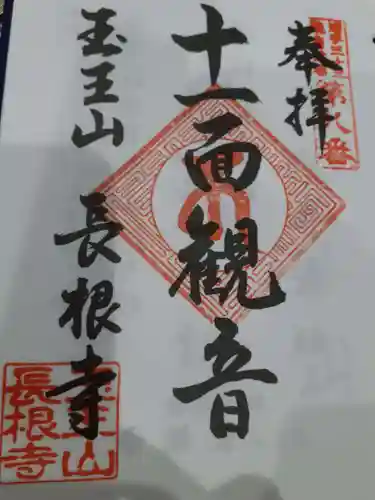 奉拝
第八番
十一面観音
玉王山 長根寺
玉王山
長根寺